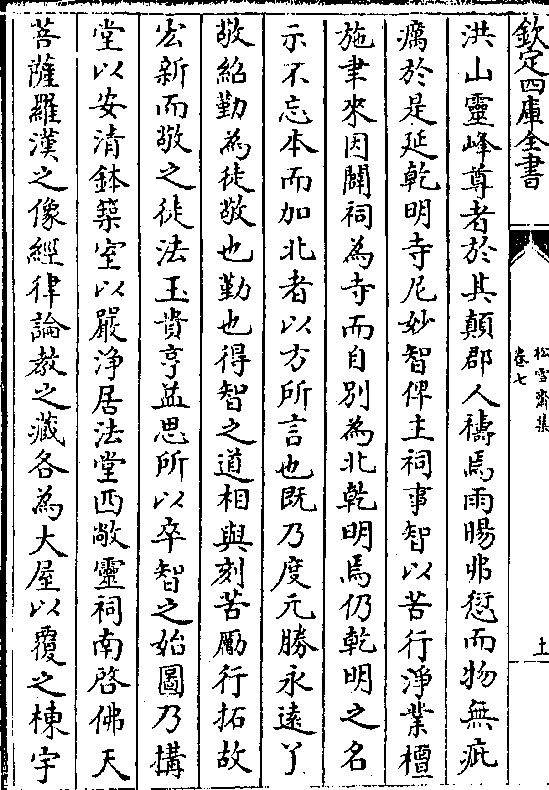 欽定四庫全書
松雪齋集
卷七
十
洪山靈峰尊者於其顛郡人禱焉雨暘弗愆而物無疵
癘於是延乾明寺尼妙智俾主祠事智以苦行淨業檀
施聿來因闢祠為寺而自別為北乾明焉仍乾明之名
示不忘本而加北者以方所言也既乃度元勝永遠丫
敬紹勤為徒敬也勤也得智之道相與刻苦勵行拓故
宏新而敬之徒法玉貴亨益思所以卒智之始圖乃搆
堂以安清鉢築室以嚴淨居法堂西敞靈祠南啓佛天
菩薩羅漢之像經律論教之藏各為大屋以覆之棟宇